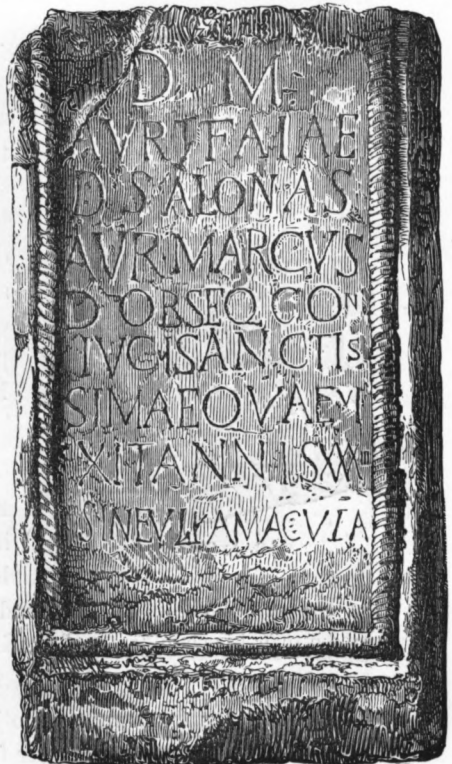 D M
AVR TFAIAE
D SALONAS
AVR·MARCVS
D OBSEQ CON
IVGI SANCTIS
SIMAE QVAE VI
XIT ANNIS XXXIII
SINE VLLA MACVLA